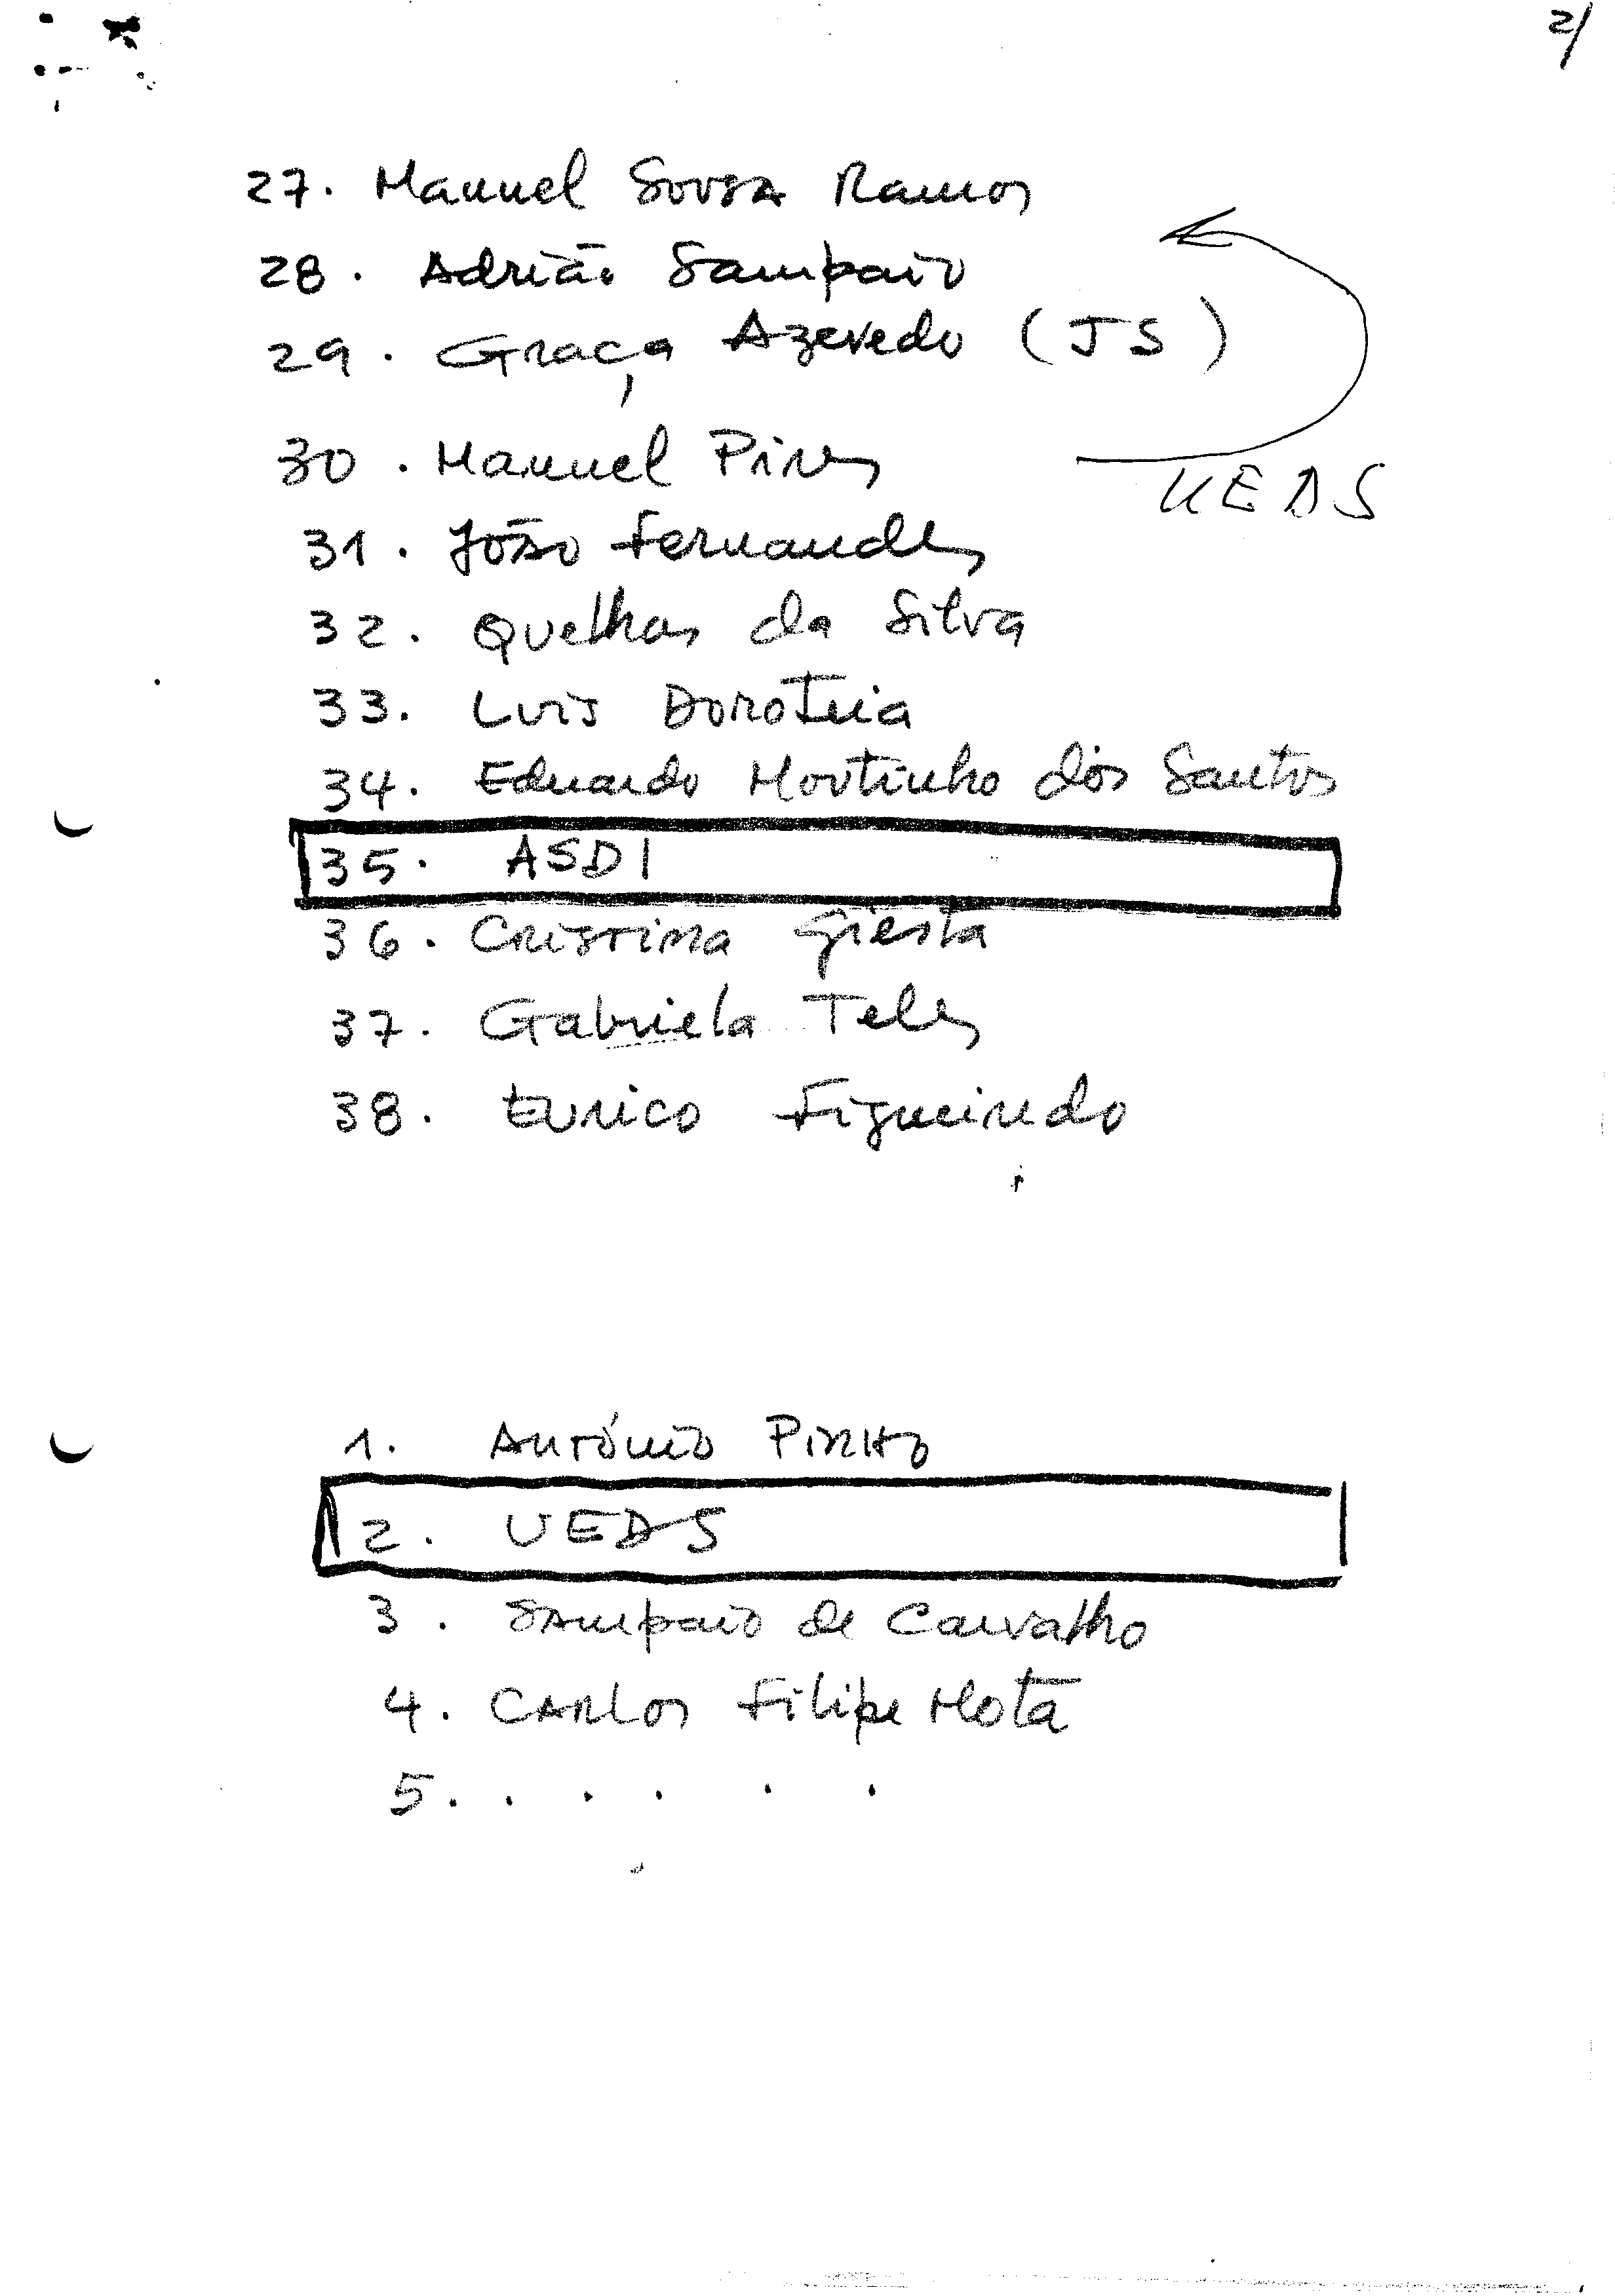 2/
27. Manuel Sousa Ramos
28. Adrião Sampaio
29. Graça Azevedo (JS)
30. Manuel Pires
UEDS
31. João Fernandes
32. Quelhas da Silva
33. Luis Doroteia
34. Eduardo Moutinho dos Santos
35. ASDI
36. Cristina Giesta
37. Gabriela Teles
38. Eurico Figueiredo
1. António Pinho
2. UEDS
3. Sampaio de Carvalho
4. Carlos Filipe Mota
5. . . . . .